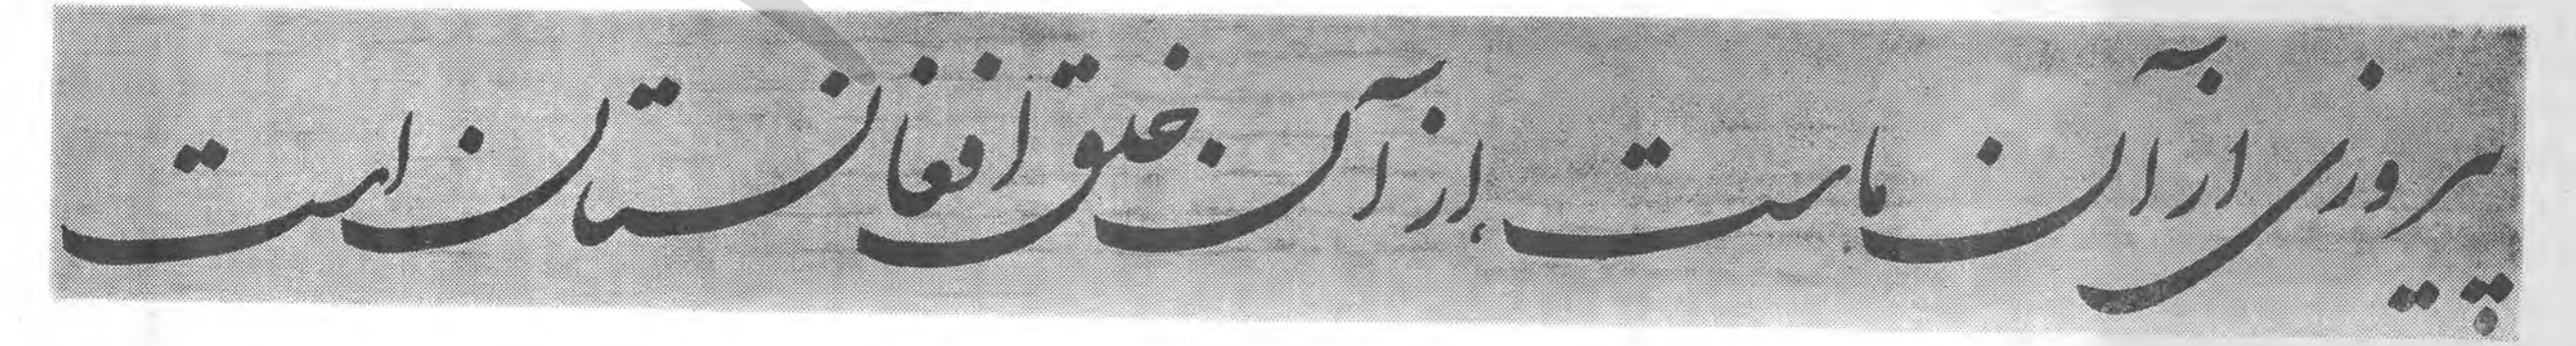 پیروزی از آن ماست، از آن خلق افغانستان است